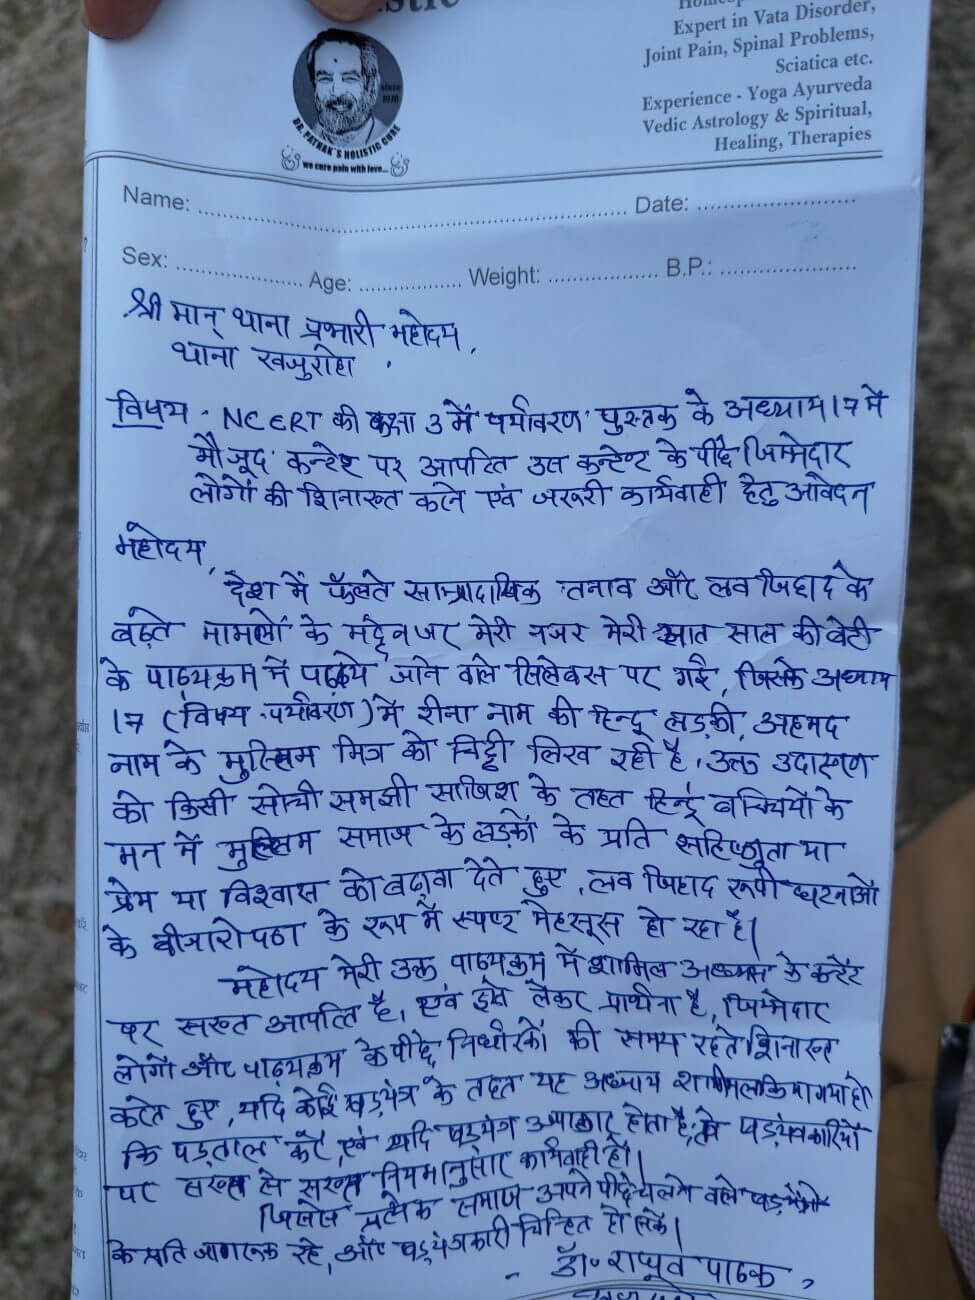 Expert in Vata Disorder,
Joint Pain, Spinal Problems,
Sciatica etc.
Experience - Yoga Ayurveda
Vedic Astrology & Spiritual,
Healing, Therapies
since 1970
DR. PATHAK'S HOLISTIC CURE
we cure pain with love...
Name: ........ Date: ........
Sex: ........ Age: ........ Weight: ........ B.P.: ........
श्री मान् थाना प्रभारी महोदय,
थाना खजुराहो
विषय - NCERT की कक्षा 3 में पर्यावरण पुस्तक के अध्याय 17 में
मौजूद कन्टेन्ट पर आपत्ति उस कन्टेण्ट के पीछे जिम्मेदार
लोगों की शिनाख्त करने एवं जरूरी कार्यवाही हेतु आवेदन
महोदय,
देश में फैलते साम्प्रदायिक तनाव और लव जिहाद के
बढ़ते मामलों के मद्देनजर मेरी नजर मेरी सात साल की बेटी
के पाठ्यक्रम में पढ़ाये जाने वाले सिलेबस पर गई, जिसके अध्याय
17 (विषय-पर्यावरण) में रीना नाम की हिन्दू लड़की, अहमद
नाम के मुस्लिम मित्र को चिट्ठी लिख रही है, उक्त उदाहरण
को किसी सोची समझी साजिश के तहत हिन्दू बच्चियों के
मन में मुस्लिम समाज के लड़कों के प्रति सहिष्णुता या
प्रेम या विश्वास को बढ़ावा देते हुए, लव जिहाद रूपी घटनाओं
के बीजारोपण के रूप में स्पष्ट मेहसूस हो रहा है।
महोदय मेरी उक्त पाठ्यक्रम में शामिल अध्याय के कन्टेंट
पर सख्त आपत्ति है, एवं इसे लेकर प्रार्थना है, जिम्मेदार
लोगों और पाठ्यक्रम के पीछे निर्धारकों की समय रहते शिनाख्त
करते हुए, यदि कोई षड़यंत्र के तहत यह अध्याय शामिल किया गया हो
कि पड़ताल करें, एवं यदि षड़यंत्र उजागर होता है, तो षड़यंत्रकारियों
पर सख्त से सख्त नियमानुसार कार्यवाही हो।
जिससे प्रत्येक समाज अपने पीछे चलने वाले षड़यंत्रों
के प्रति जागरूक रहे, और षड़यंत्रकारी चिन्हित हो सकें।
डॉ॰ राघव पाठक,